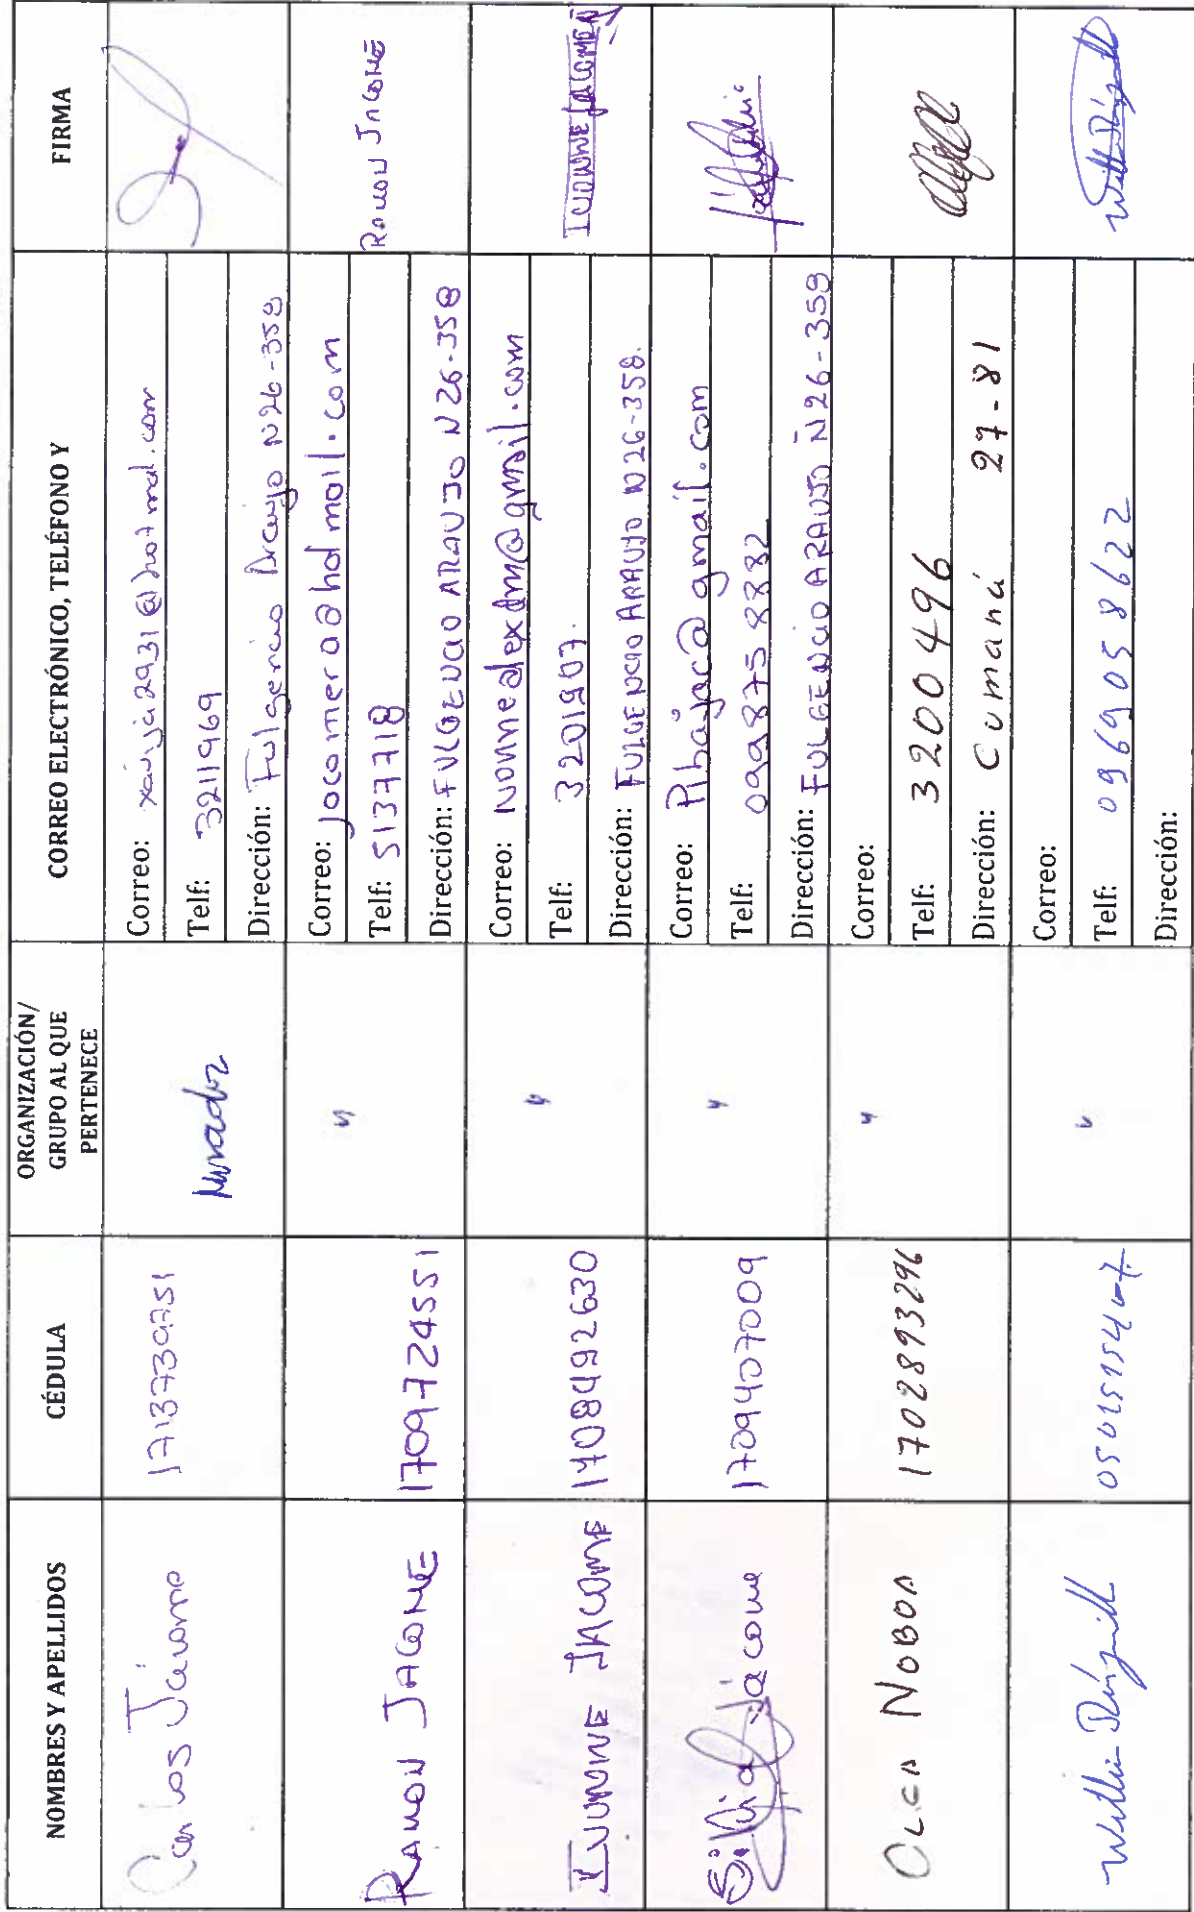 NOMBRES Y APELLIDOS
CÉDULA
ORGANIZACIÓN/
GRUPO AL QUE
PERTENECE
CORREO ELECTRÓNICO, TELÉFONO Y
FIRMA
Carlos Jácome
1713739751
Morador
Correo: xavija2931@hotmal.com
Telf: 3211969
Dirección: Fulgencio Araujo N26-358
RAMON JACOME
1709724551
"
Correo: jocomero@hotmail.com
Telf: 5137718
Dirección: FULGENCIO ARAUJO N26-358
RAMON JACOME
IVONNE JACOME
1708492630
"
Correo: ivonnealexdm@gmail.com
Telf: 3201907.
Dirección: FULGENCIO ARAUJO N26-358.
IVONNE JACOME
Silvia Jácome
1709407009
"
Correo: Plbajac@gmail.com
Telf: 0998758882
Dirección: FULGENCIO ARAUJO N26-359
OLGA NOBOA
1702893296
"
Correo:
Telf: 3200496
Dirección: Cumaná 27-81
0501515407
"
Correo:
Telf: 0969058622
Dirección: